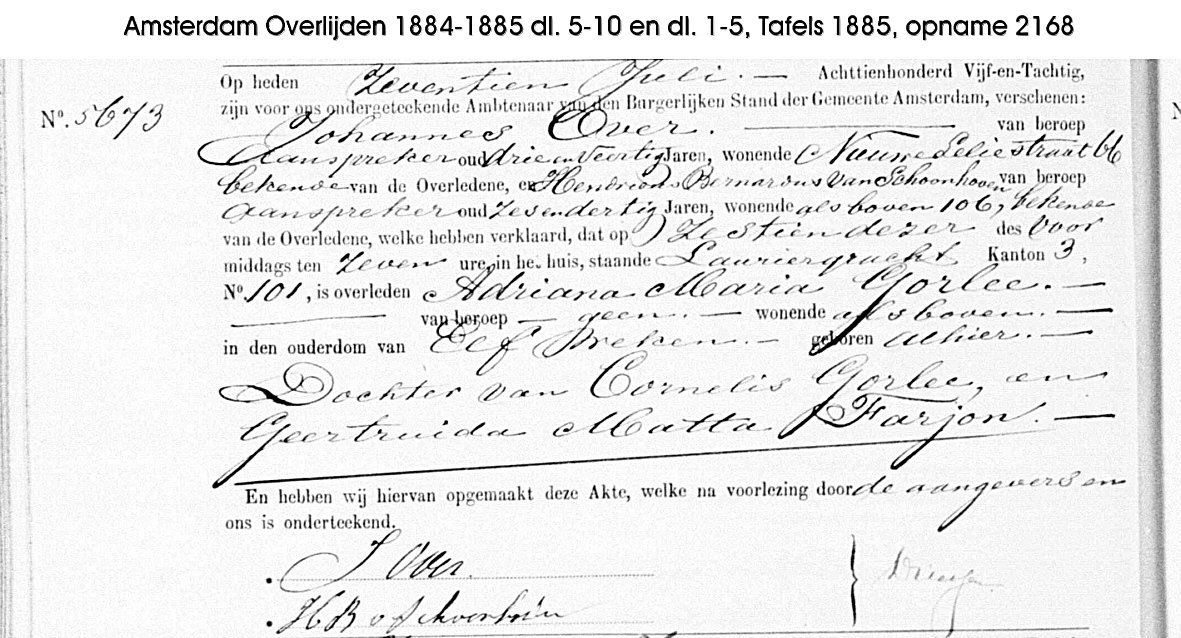 Amsterdam Overlijden 1884-1885 dl. 5-10 en dl. 1-5, Tafels 1885, opname 2168
Op heden Zeventien Juli. — Achttienhonderd Vijf-en-Tachtig,
Nº. 5673
zijn voor ons ondergeteekende Ambtenaar van den Burgerlijken Stand der Gemeente Amsterdam, verschenen:
Johannes Over. — van beroep
Aanspreker oud drie en Veertig Jaren, wonende Nieuwe Leliestraat 66
bekende van de Overledene, en Hendricus Bernardus van Schoonhoven van beroep
Aanspreker oud Zesendertig Jaren, wonende als boven 106, bekende
van de Overledene, welke hebben verklaard, dat op Zestien dezer des Voor
middags ten Zeven ure, in het huis, staande Lauriergracht Kanton 3,
Nº. 101, is overleden Adriana Maria Gorlee. —
— van beroep — geen. — wonende als boven. —
in den ouderdom van Elf Weken. — geboren alhier. —
Dochter van Cornelis Gorlee, en
Geertruida Matta Farjon. —
En hebben wij hiervan opgemaakt deze Akte, welke na voorlezing door de aangevers en
ons is onderteekend.
J Over.
H B v Schoonhoven